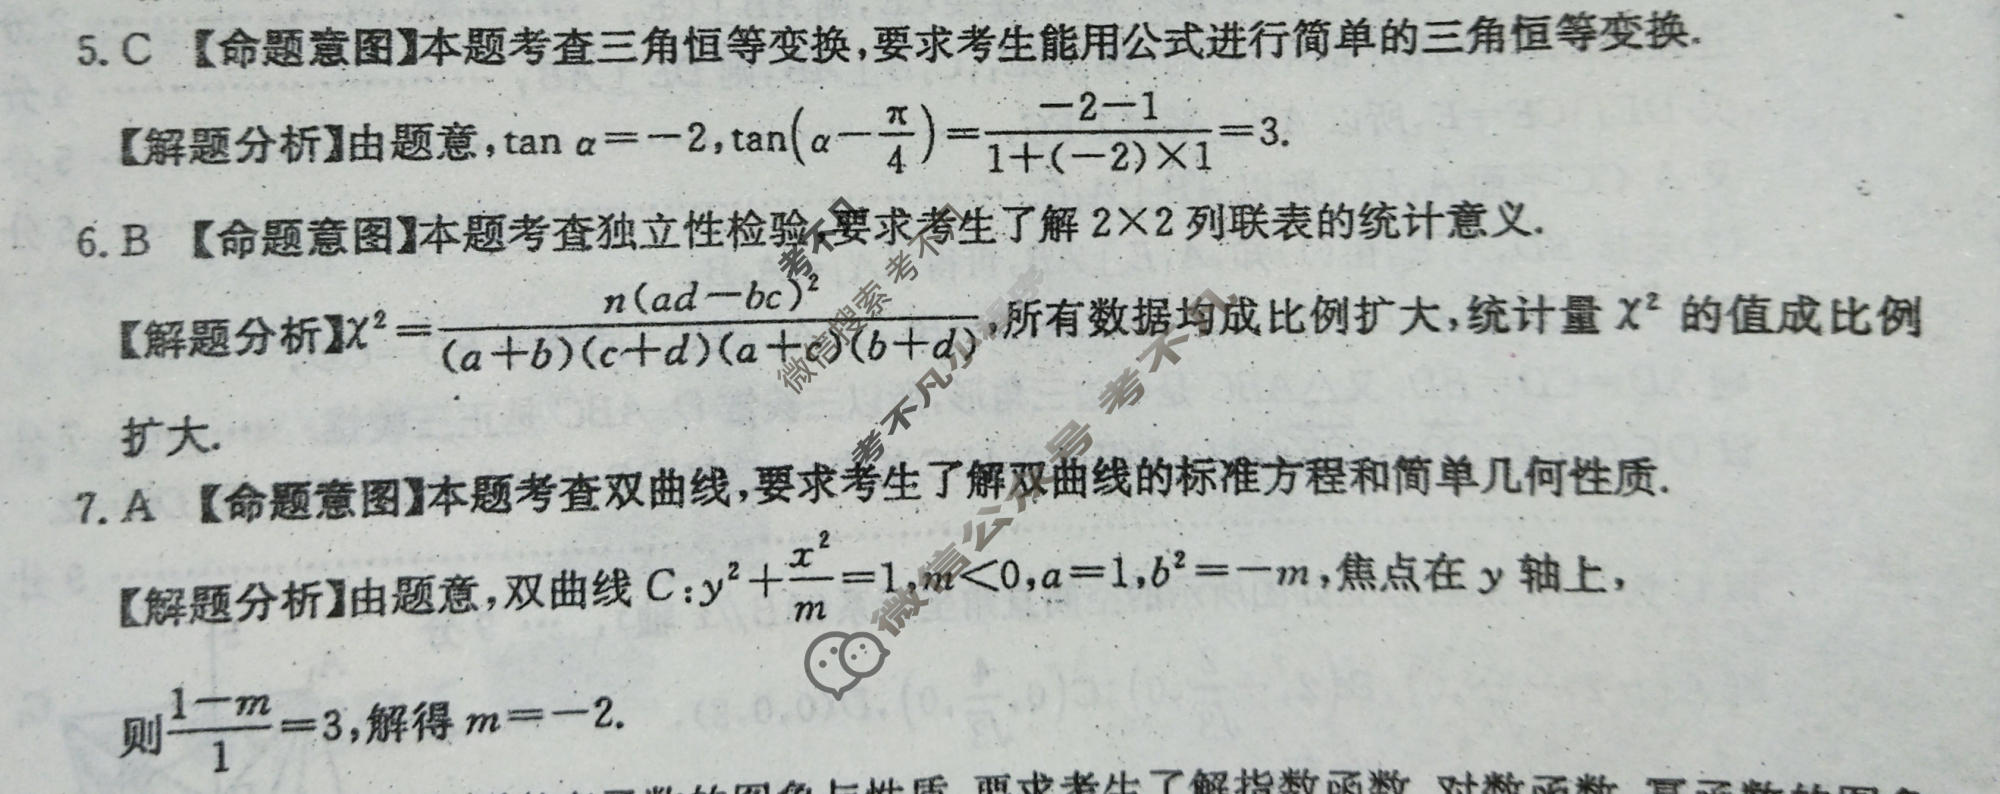 5. C 【命题意图】本题考查三角恒等变换,要求考生能用公式进行简单的三角恒等变换.
【解题分析】由题意,tan α=-2,tan(α-π/4)=(-2-1)/(1+(-2)×1)=3.
6. B 【命题意图】本题考查独立性检验,要求考生了解 2×2 列联表的统计意义.
【解题分析】χ²=n(ad-bc)²/((a+b)(c+d)(a+c)(b+d)),所有数据均成比例扩大,统计量 χ² 的值成比例
扩大.
7. A 【命题意图】本题考查双曲线,要求考生了解双曲线的标准方程和简单几何性质.
【解题分析】由题意,双曲线 C:y²+x²/m=1,m<0,a=1,b²=-m,焦点在 y 轴上,
则(1-m)/1=3,解得 m=-2.
考不凡
微信搜索 考不凡
考不凡小程序
微信公众号 考不凡